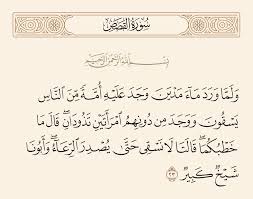 سُورَةُ القَصَصِ
بِسْمِ اللَّهِ الرَّحْمَٰنِ الرَّحِيمِ
وَلَمَّا وَرَدَ مَآءَ مَدْيَنَ وَجَدَ عَلَيْهِ أُمَّةً مِّنَ ٱلنَّاسِ
يَسْقُونَ وَوَجَدَ مِن دُونِهِمُ ٱمْرَأَتَيْنِ تَذُودَانِ ۖ قَالَ مَا
خَطْبُكُمَا ۖ قَالَتَا لَا نَسْقِى حَتَّىٰ يُصْدِرَ ٱلرِّعَآءُ ۖ وَأَبُونَا
شَيْخٌ كَبِيرٌ ٢٣